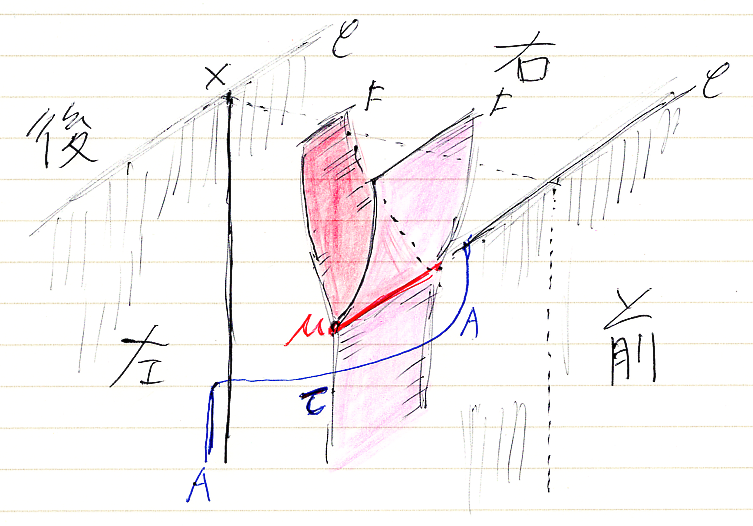 l
右
l
x
F
F
後
μ
A
前
左
τ
A